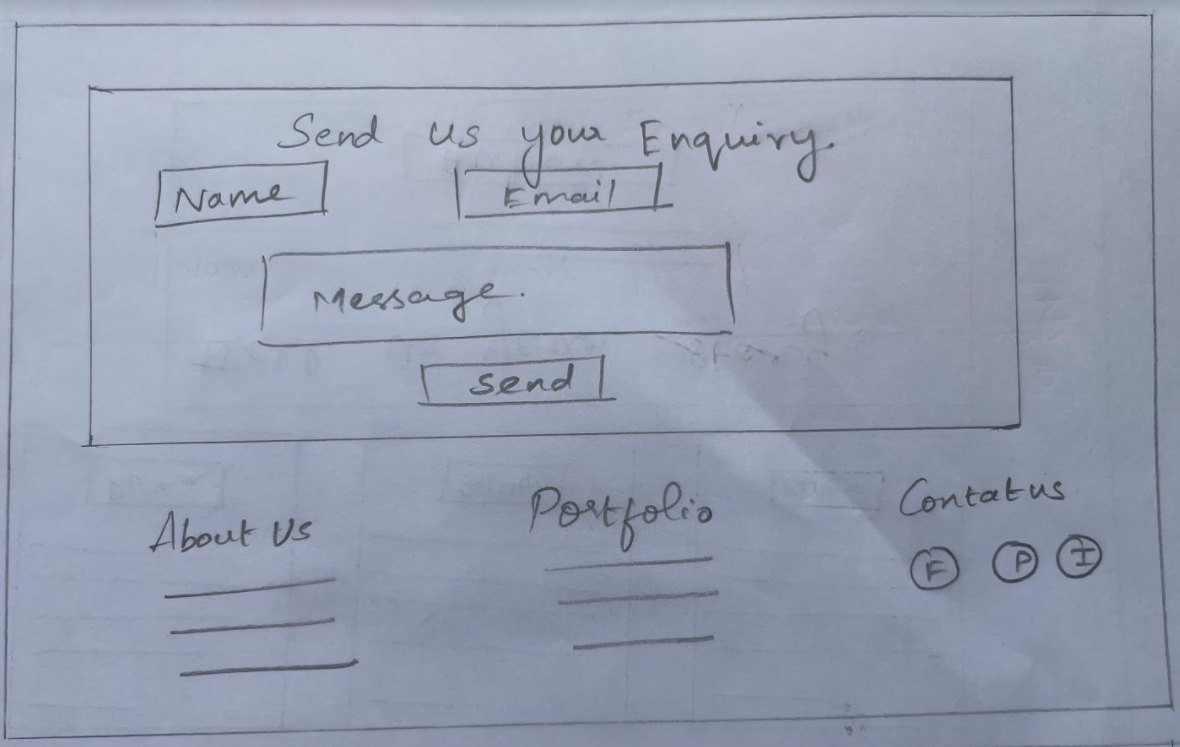 Send us your Enquiry.
Name Email
Message.
Send
About Us Portfolio Contat us
F P I